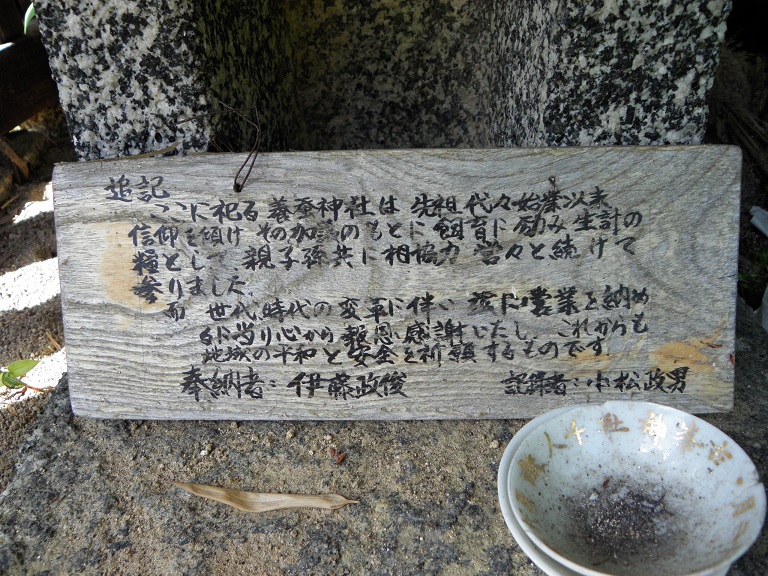 追記
ここに祀る養蚕神社は先祖代々始業以来
信仰を傾けその加護のもとに飼育に励み生計の
糧として親子孫共に相協力営々と続けて
参りました
而 世代時代の変革に伴い 遂に営業を納め
るに当り心から報恩感謝いたし これからも
地域の平和と安全を祈願するものです
奉納者:伊藤政俊 記録者:小松政男